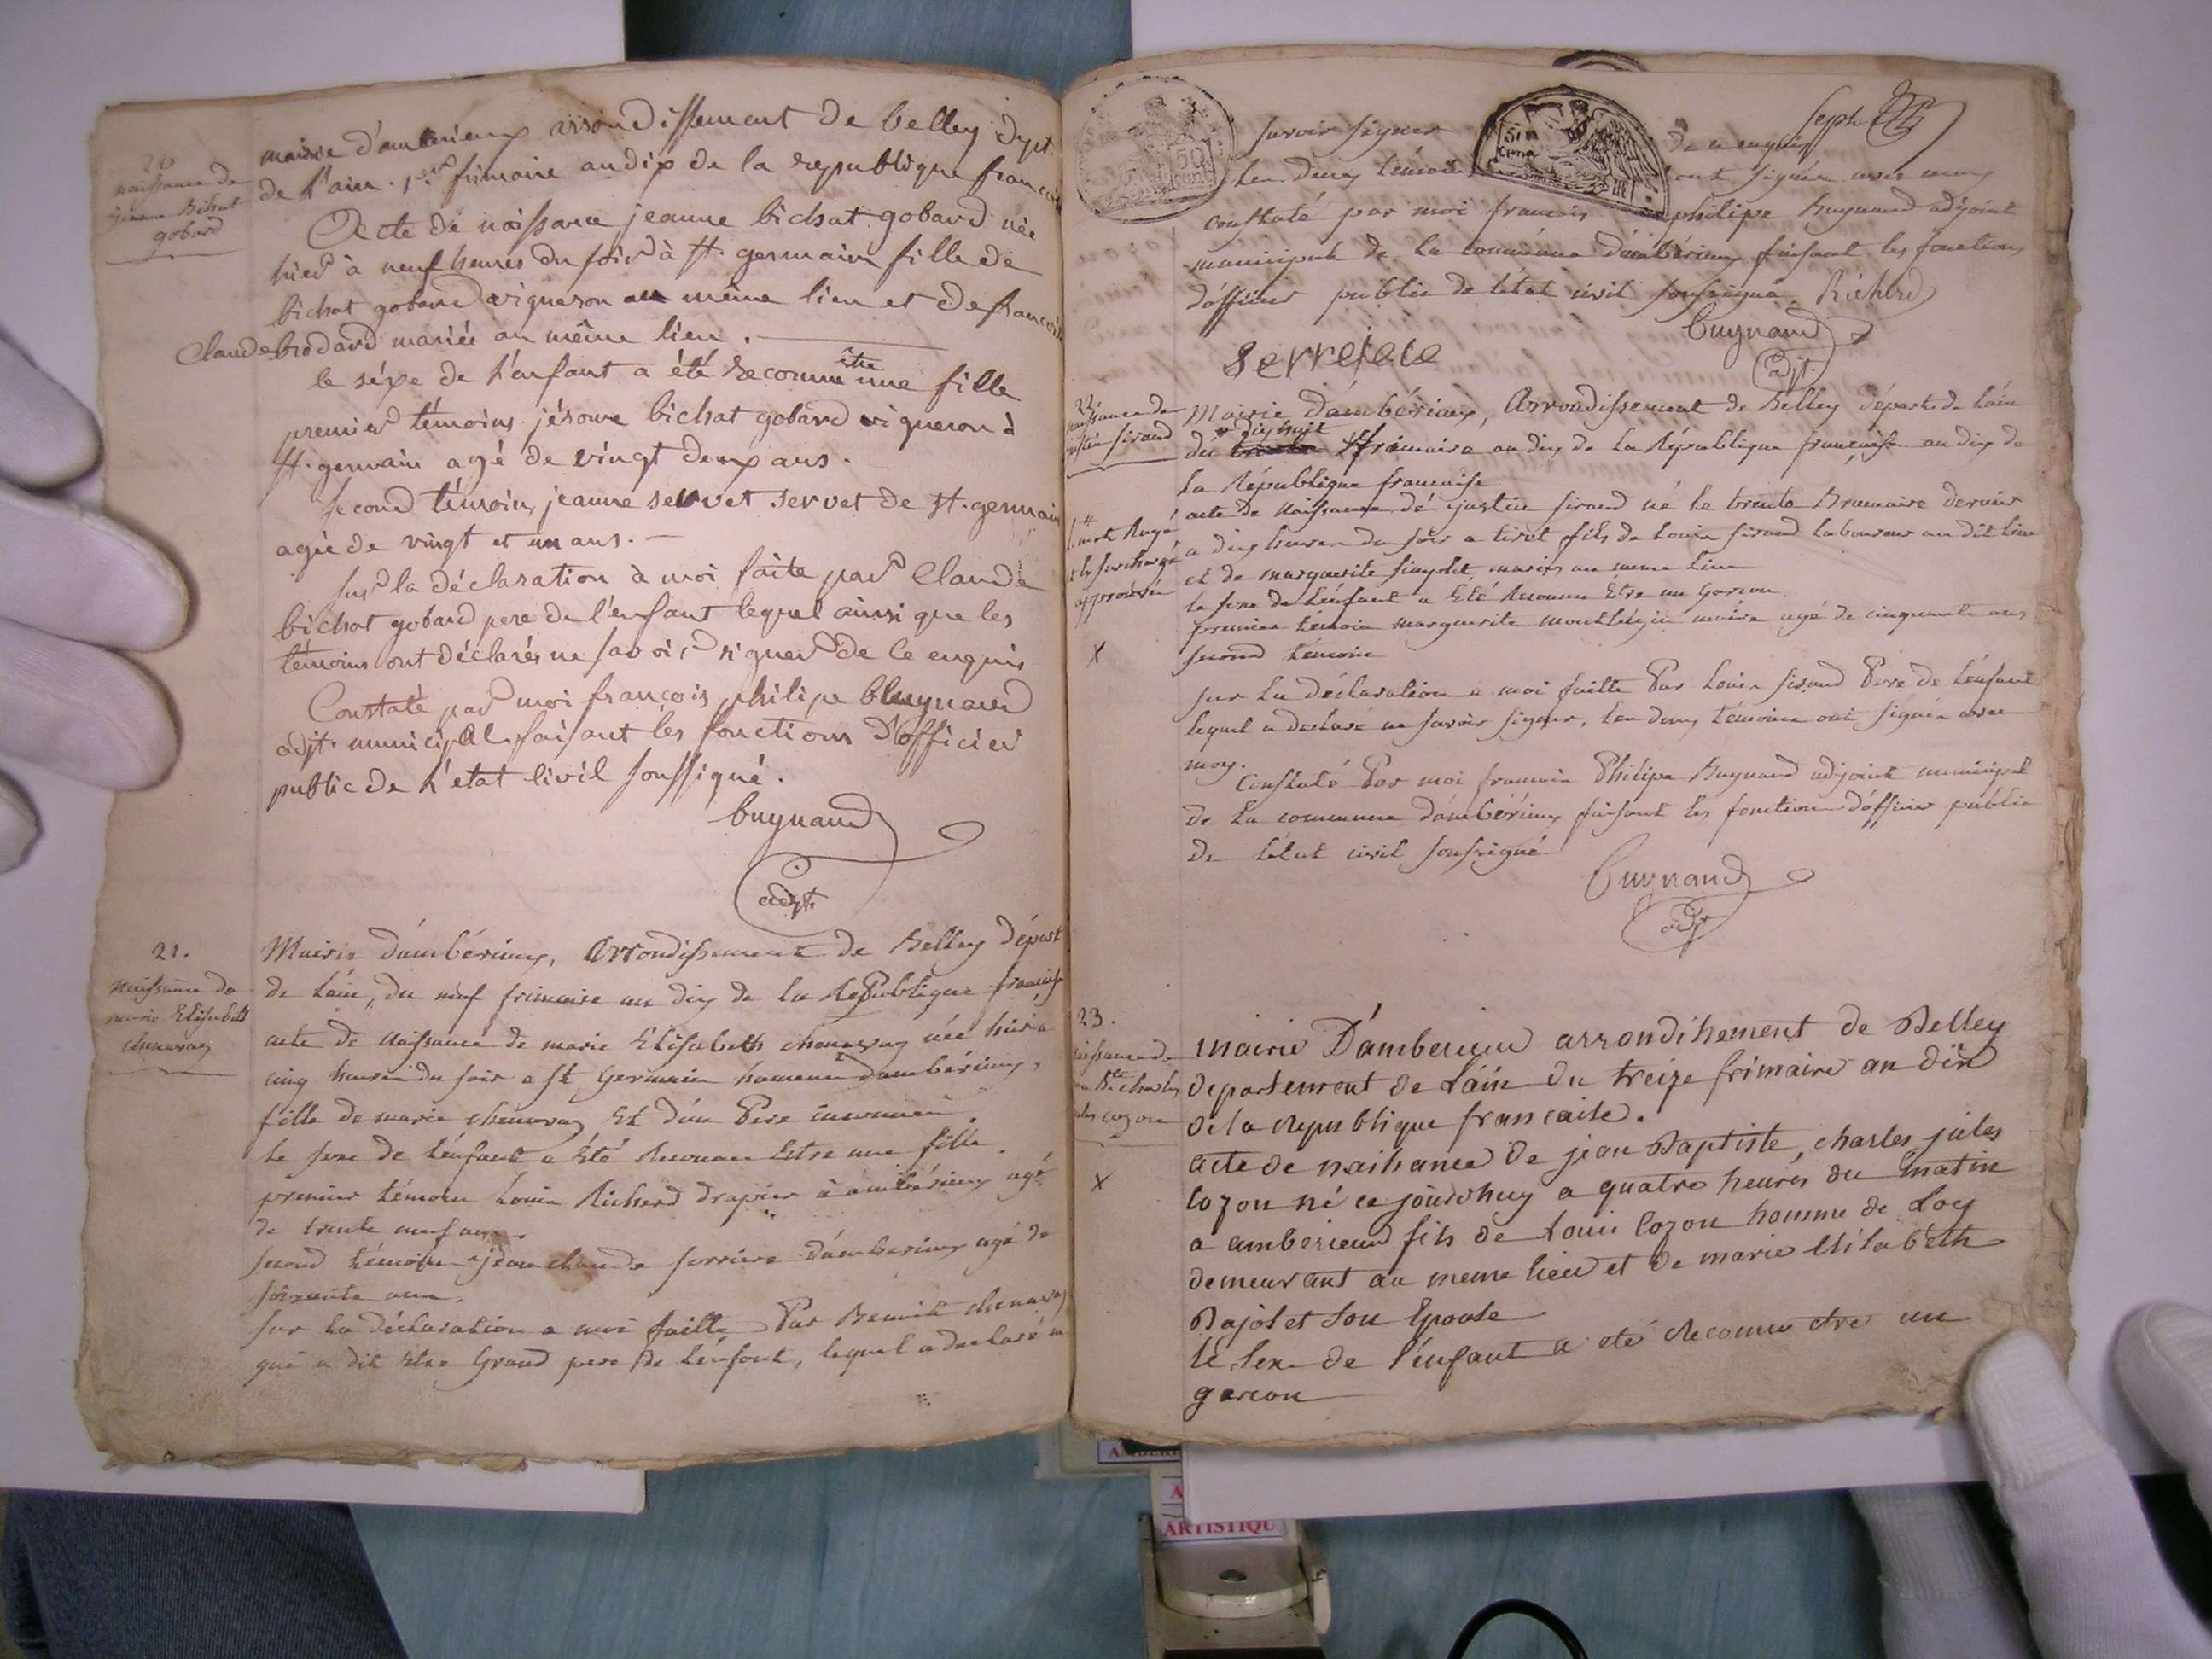 20
naissance de
jeanne Bichat
gobard
mairie d'amberieux arrondissement de belley dept.
de l'ain. 1er frimaire an dix de la republique francoise
Acte de naissance jeanne bichat gobard née
hier à neuf heures du soir à st. germain fille de
bichat gobard vigneron au même lieu et de francoise
Claude brodard mariée au même lieu.
le séxe de l'enfant a été reconnu être une fille
premier témoins jérome bichat gobard vigneron à
st. germain agé de vingt deux ans.
second témoin, jeanne servet servet de st. germain
agée de vingt et un ans.
sur la déclaration à moi faite par Claude
bichat gobard pere de l'enfant lequel ainsi que les
témoins ont déclarés ne savoir signer de ce enquis
Constaté par moi françois philipe buynand
adjt. municipal faisant les fonctions d'officier
public de l'etat civil soussigné.
buynand
adjt
21.
naissance de
marie Elisabeth
chenavaz
Mairie d'ambérieux, Arrondissement de Belley départ
de l'ain, du neuf frimaire an dix de la République française
acte de naissance de marie Elisabeth chenavaz née hier a
cinq heures du soir a st Germain hameau d'ambérieux,
fille de marie chenavaz et d'un Pere inconnu.
Le sexe de l'enfant a été Reconnu Etre une fille.
premier témoin Louis Richerd drapier à ambérieux agé
de trente neuf ans
second témoin jean claude serriere d'amberieux agé de
soixante ans.
sur la déclaration a moi faitte Par Benoit chenavaz
qui a dit être Grand pere de l'enfant, lequel a declaré ne
savoir signer de ce enquis
Les deux témoins ont signés avec moy
constaté par moi francois philipe Buynand adjoint
municipale de la commune d'ambérieux faisant les fonctions
d'officier public de l'état civil soussigné. Richerd
buynand
adjt.
serrefece
22.
naissance de
justin sirand
mairie d'ambérieux, Arrondissement de Belley départt de l'ain
dix huit
du frimaire an dix de la République française an dix de
la République francaise
acte de naissance de justin sirand né le trente Brumaire dernier
a dix heures du soir a tiret fils de Louis sirand laboureur au dit lieu
et de marguerite singolet mariés au meme lieu
le sexe de l'enfant a Eté Reconnu Etre un Garcon
mot Rayé
et le surchargé
approuvés
premier témoin marguerite agé de cinquante ans
X
second témoin
sur la déclaration a moi faitte Par Louis sirand Pere de l'enfant
lequel a declaré ne savoir signer, les deux témoins ont signés avec
moy.
Constaté Par moi francois Philipe Buynand adjoint municipal
de la commune d'ambérieux faisant les fonction d'officier public
de l'état civil soussigné
buynand
adjt
23.
naissance de
jean Bte charles
jules cozon
X
mairie D'amberieux arrondissement de Belley
departement de L'ain du treize frimaire an dix
de la republique francaise.
acte de naissance de jean Baptiste, charles jules
Cozon né ce jourd'huy a quatre heures du matin
a amberieux fils de Louis Cozon homme de Loy
demeurant au meme lieu et de marie Elisabeth
Pajolet son Epouse
le sexe de l'enfant a eté reconnu etre un
garcon
ARTISTIQU